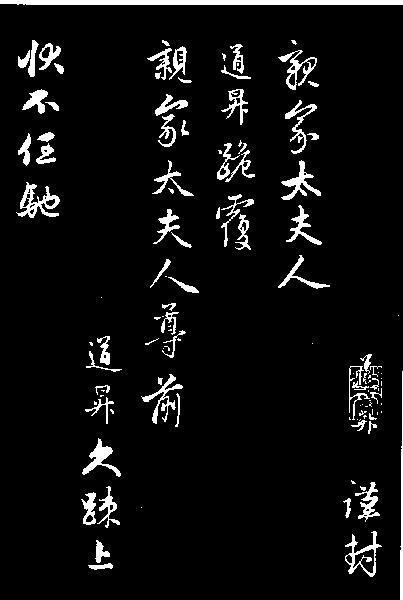 道昇 謹封
親家太夫人
道昇跪覆
親家太夫人尊前
道昇久踈上
状不任馳